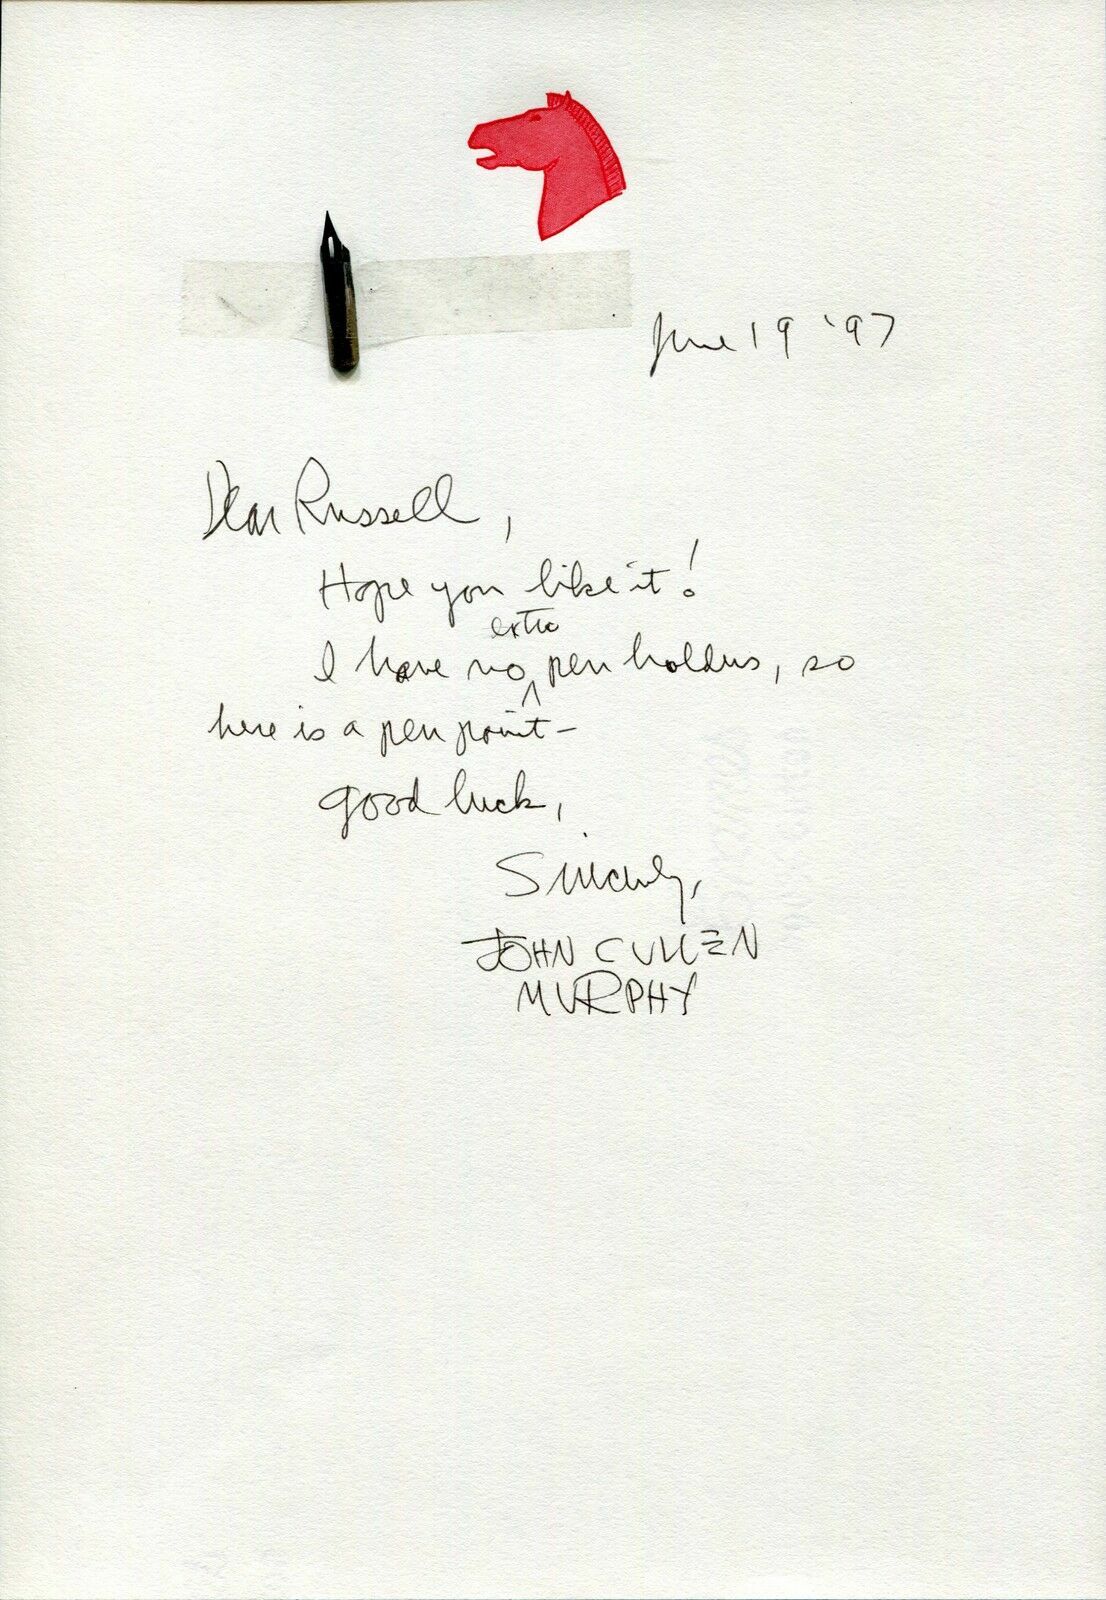 June 19 '97
Dear Russell,
Hope you like it!
I have no extra pen holders, so
here is a pen point–
good luck,
Sincerely,
JOHN CULLEN
MURPHY